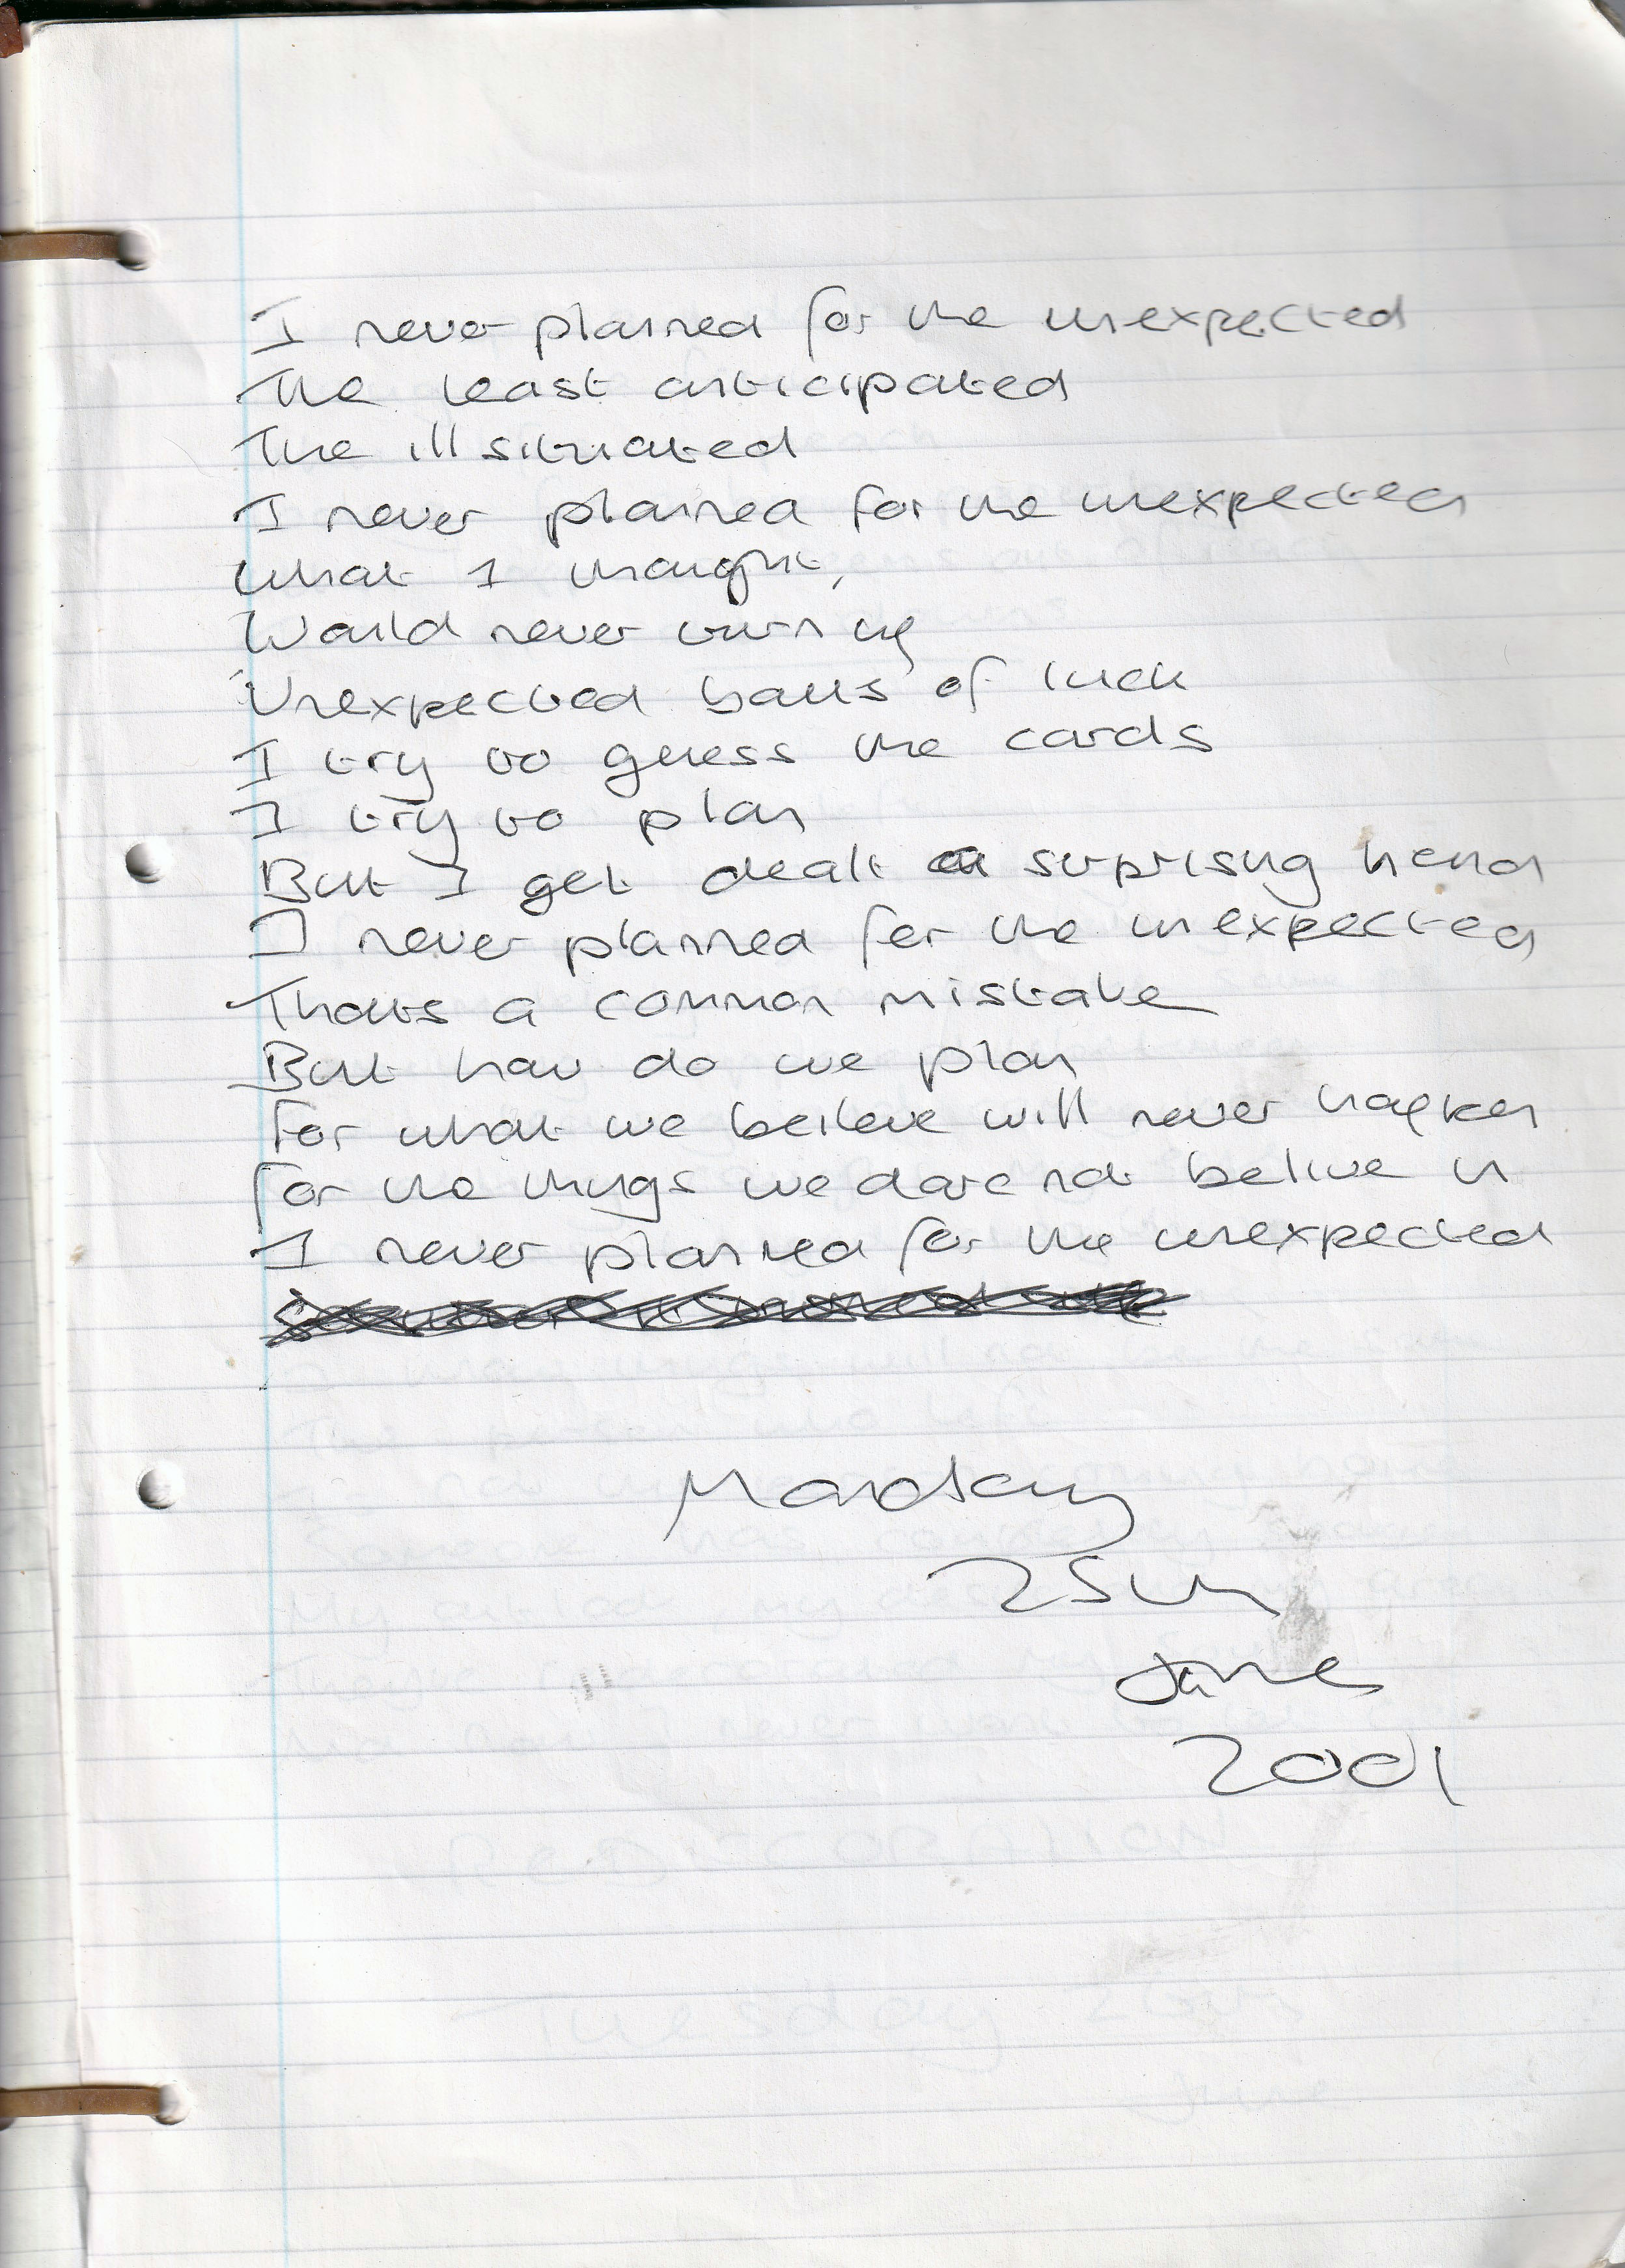 I never planned for the unexpected
The least anticipated
The ill situated
I never planned for the unexpected
What I thought,
Would never turn up
Unexpected balls of luck
I try to guess the cards
I try to plan
But I get dealt a surprisng hand
I never planned for the unexpected
Thats a common mistake
But how do we plan
For what we beileve will never happen
For the things we dare not belive in
I never planned for the unexpected
Monday
25th
June
2001
Tuesday 26th
June